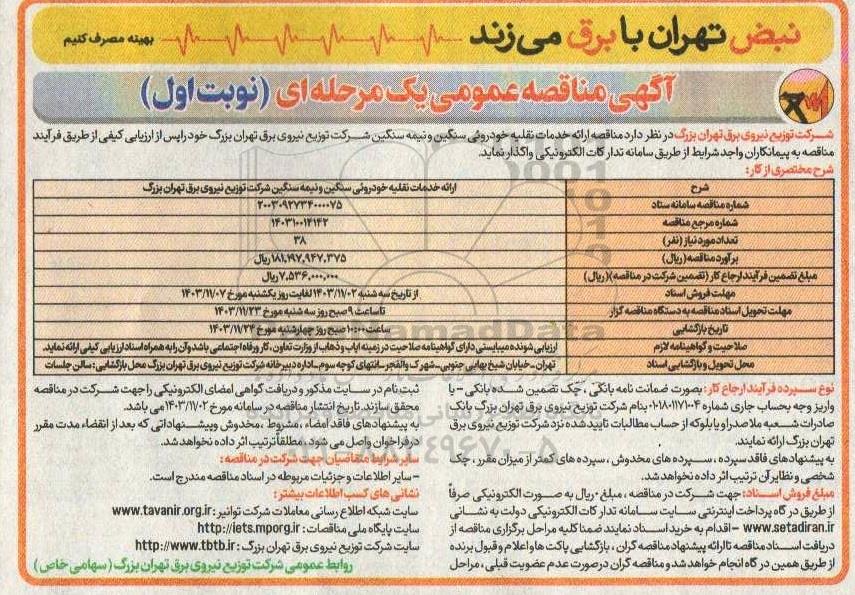 نبض تهران با برق می زند
بهینه مصرف کنیم
آگهی مناقصه عمومی یک مرحله ای (نوبت اول)
شرکت توزیع نیروی برق تهران بزرگ در نظر دارد مناقصه ارائه خدمات نقلیه خودروئی سنگین و نیمه سنگین شرکت توزیع نیروی برق تهران بزرگ خود را پس از ارزیابی کیفی از طریق فرآیند
مناقصه به پیمانکاران واجد شرایط از طریق سامانه تدارکات الکترونیکی واگذار نماید.
شرح مختصری از کار:
شرح ارائه خدمات نقلیه خودروئی سنگین و نیمه سنگین شرکت توزیع نیروی برق تهران بزرگ
شماره مناقصه سامانه ستاد ۲۰۰۳۰۹۲۷۳۴۰۰۰۰۷۵
شماره مرجع مناقصه ۱۴۰۳۱۰۰۱۴۱۴۲
تعداد مورد نیاز (نفر) ۳۸
برآورد مناقصه (ریال) ۱۸۱,۱۹۷,۹۴۷,۳۷۵ ریال
مبلغ تضمین فرآیند ارجاع کار (تضمین شرکت در مناقصه)(ریال) ۷,۵۳۶,۰۰۰,۰۰۰ ریال
مهلت فروش اسناد از تاریخ سه شنبه ۱۴۰۳/۱۱/۰۲ لغایت روز یکشنبه مورخ ۱۴۰۳/۱۱/۰۷
مهلت تحویل اسناد مناقصه به دستگاه مناقصه گزار تا ساعت ۹ صبح روز سه شنبه مورخ ۱۴۰۳/۱۱/۲۳
تاریخ بازگشایی ساعت ۱۰:۰۰ صبح روز چهارشنبه مورخ ۱۴۰۳/۱۱/۲۴
صلاحیت و گواهینامه لازم ارزیابی شونده میبایستی دارای گواهینامه صلاحیت در زمینه ایاب و ذهاب از وزارت تعاون، کار و رفاه اجتماعی باشد و آن را به همراه اسناد ارزیابی کیفی ارائه نماید.
محل تحویل و بازگشایی اسناد تهران-خیابان شیخ بهایی جنوبی-شهرک والفجر-انتهای کوچه سوم-اداره دبیرخانه شرکت توزیع نیروی برق تهران بزرگ محل بازگشایی: سالن جلسات
نوع سپرده فرآیند ارجاع کار: بصورت ضمانت نامه بانکی، چک تضمین شده بانکی – یا
واریز وجه بحساب جاری شماره ۰۱۰۱۸۰۱۱۷۱۰۰۴ بنام شرکت توزیع نیروی برق تهران بزرگ بانک
صادرات شعبه ملاصدرا و یا بلوکه از حساب مطالبات تایید شده نزد شرکت توزیع نیروی برق
تهران بزرگ ارائه نمایند.
به پیشنهادهای فاقد سپرده، سپرده های مخدوش، سپرده های کمتر از میزان مقرر، چک
شخصی و نظایر آن ترتیب اثر داده نخواهد شد.
مبلغ فروش اسناد: جهت شرکت در مناقصه، مبلغ ۰ ریال به صورت الکترونیکی صرفاً
از طریق درگاه پرداخت اینترنتی سایت سامانه تدارکات الکترونیکی دولت به نشانی
www.setadiran.ir – اقدام به خرید اسناد نمایند ضمنا کلیه مراحل برگزاری مناقصه از
دریافت اسناد مناقصه تا ارائه پیشنهاد مناقصه گران، بازگشایی پاکت ها و اعلام و قبول برنده
از طریق همین درگاه انجام خواهد شد و مناقصه گران در صورت عدم عضویت قبلی، مراحل
ثبت نام در سایت مذکور و دریافت گواهی امضای الکترونیکی را جهت شرکت در مناقصه
محقق سازند. تاریخ انتشار مناقصه در سامانه مورخ ۱۴۰۳/۱۱/۰۲ می باشد.
به پیشنهادهای فاقد امضاء، مشروط، مخدوش و پیشنهاداتی که بعد از انقضاء مدت مقرر
در فراخوان واصل می شود، مطلقاً ترتیب اثر داده نخواهد شد.
سایر شرایط متقاضیان جهت شرکت در مناقصه:
– سایر اطلاعات و جزئیات مربوطه در اسناد مناقصه مندرج است.
نشانی های کسب اطلاعات بیشتر:
سایت شبکه اطلاع رسانی معاملات شرکت توانیر: www.tavanir.org.ir
سایت پایگاه ملی مناقصات: http://iets.mporg.ir
سایت شرکت توزیع نیروی برق تهران بزرگ: http://www.tbtb.ir
روابط عمومی شرکت توزیع نیروی برق تهران بزرگ (سهامی خاص)